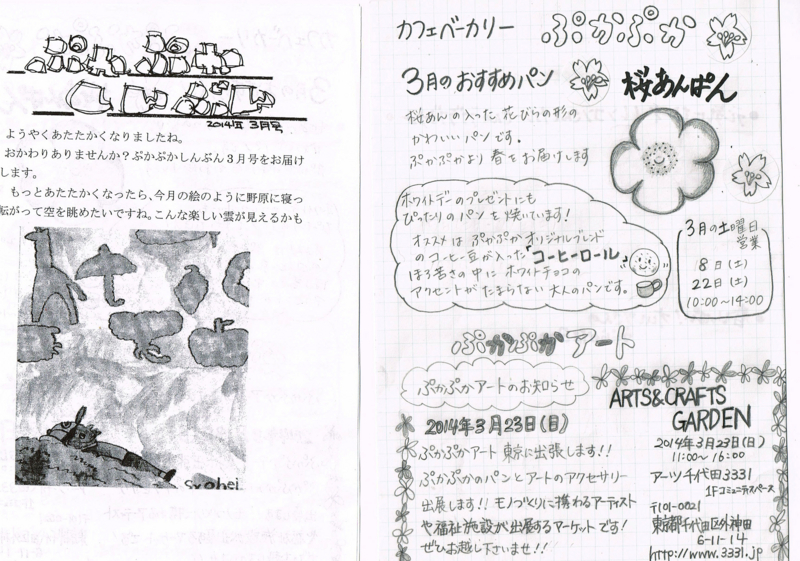 ぷかぷか
しんぶん
2014年 3月号
ようやくあたたかくなりましたね。
おかわりありませんか？ぷかぷかしんぶん３月号をお届け
します。
もっとあたたかくなったら、今月の絵のように野原に寝っ
転がって空を眺めたいですね。こんな楽しい雲が見えるかも
Syohei
カフェベーカリー ぷかぷか
3月のおすすめパン 桜あんぱん
桜あんの入った花びらの形の
かわいいパンです。
ぷかぷかより春をお届けします
ホワイトデーのプレゼントにも
ぴったりのパンを焼いています!
オススメは ぷかぷかオリジナルブレンド
のコーヒー豆が入った「コーヒーロール」
ほろ苦さの中に ホワイトチョコの
アクセントがたまらない大人のパンです。
3月の土曜日
営業
8日(土)
22日(土)
10:00〜14:00
ぷかぷかアート
ぷかぷかアートのお知らせ
2014年3月23日(日)
ぷかぷかアート 東京に出張します!!
ぷかぷかのパンとアートのアクセサリー
出展します!! モノづくりに携わるアーティスト
や福祉施設が出展するアーケットです!
ぜひお越し下さいませ!!
ARTS&CRAFTS
GARDEN
2014年3月23日(日)
11:00〜16:00
アーツ千代田3331
1Fコミュニティスペース
〒101-0021
東京都千代田区外神田
6-11-14
http://www.3331.jp